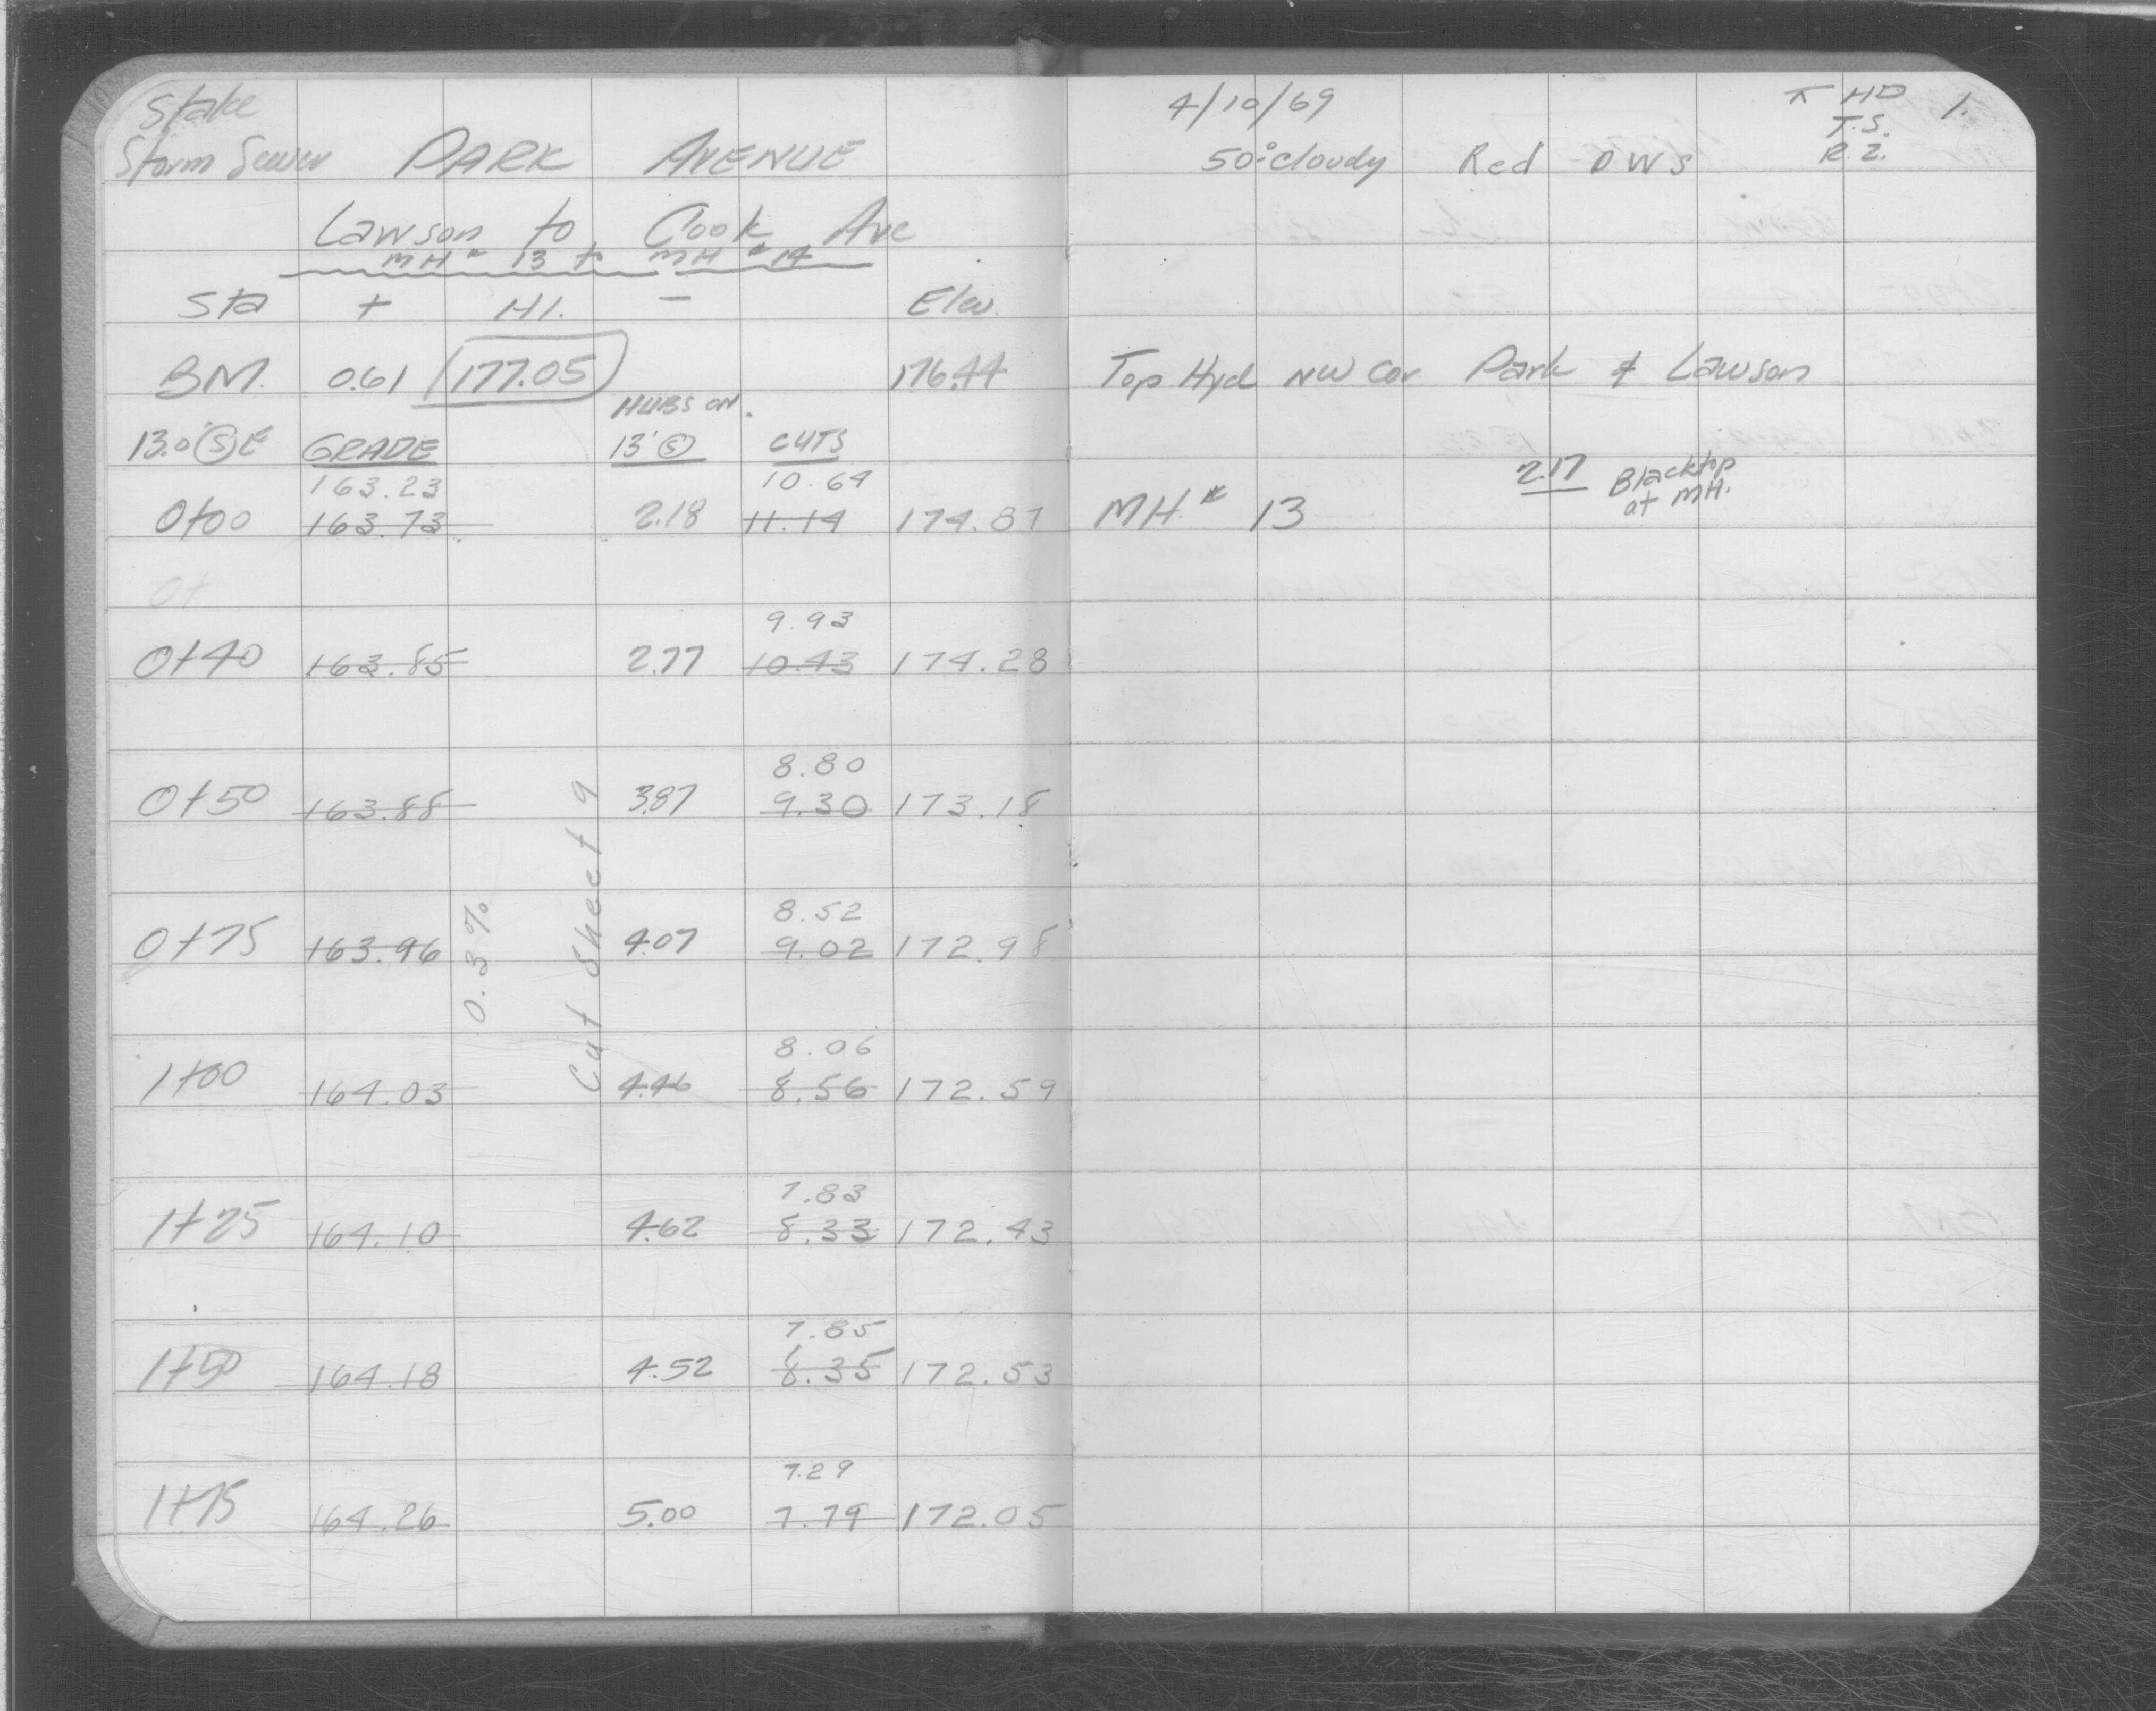 Stake
Storm Sewer PARK AVENUE
Lawson to Cook Ave
MH # 13 to MH # 14
Sta + H.I. - Elev.
BM. 0.61 177.05 176.44
HUBS ON.
13.0' (S) E GRADE 13' (S) CUTS
163.23 10.64
0+00 163.73 2.18 11.14 174.87
0+
9.93
0+40 163.85 2.77 10.43 174.28
8.80
0+50 163.88 3.87 9.30 173.18
8.52
0+75 163.96 4.07 9.02 172.98
0.3%
Cut Sheet 9
8.06
1+00 164.03 4.46 8.56 172.59
7.83
1+25 164.10 4.62 8.33 172.43
7.85
1+50 164.18 4.52 8.35 172.53
7.29
1+75 164.26 5.00 7.79 172.05
4/10/69 ⊼ HD 1.
T.S.
50° cloudy Red DWS R.Z.
Top Hyd NW Cor Park & Lawson
2.17 Blacktop
at MH.
MH.# 13